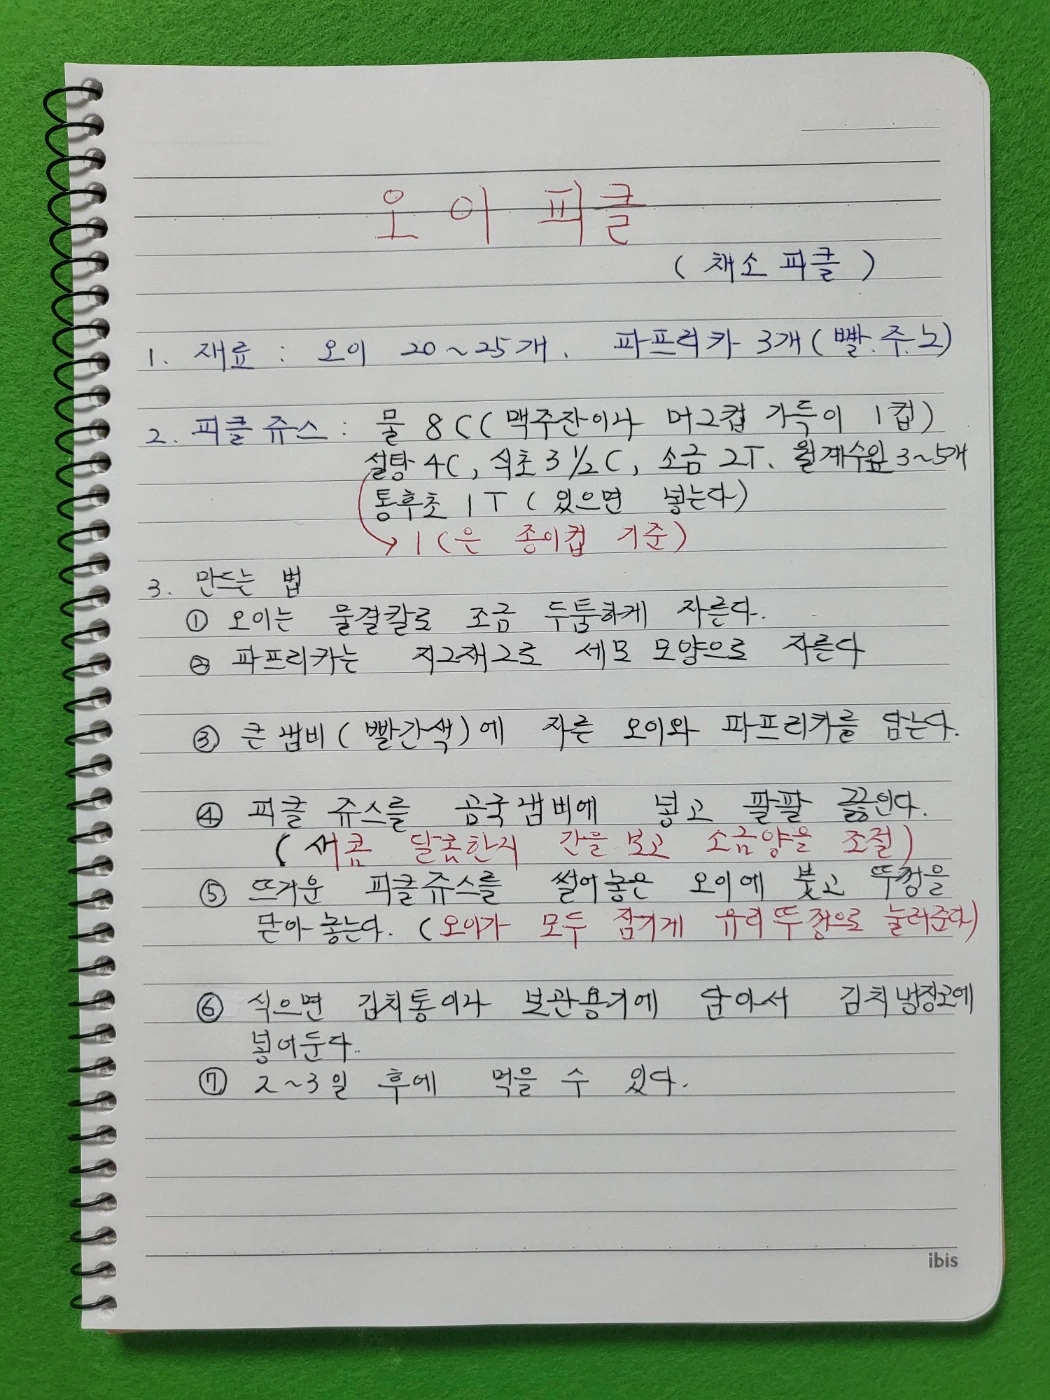 오이 피클
( 채소 피클 )
1. 재료 : 오이 20~25개. 파프리카 3개(빨.주.노)
2. 피클쥬스 : 물 8C(맥주잔이나 머그컵 가득이 1컵)
설탕 4C, 식초 3 1/2 C, 소금 2T. 월계수잎 3~5개
통후추 1T (있으면 넣는다)
→ 1C은 종이컵 기준)
3. 만드는 법
① 오이는 물결칼로 조금 두툼하게 자른다.
② 파프리카는 지그재그로 세모 모양으로 자른다
③ 큰 냄비(빨간색)에 자른 오이와 파프리카를 담는다.
④ 피클 쥬스를 곰국냄비에 넣고 팔팔 끓인다.
( 새콤 달콤한지 간을 보고 소금양을 조절)
⑤ 뜨거운 피클쥬스를 썰어놓은 오이에 붓고 뚜껑을
닫아 놓는다. (오이가 모두 잠기게 유리뚜껑으로 눌러준다)
⑥ 식으면 김치통이나 보관용기에 담아서 김치냉장고에
넣어둔다.
⑦ 2~3일 후에 먹을 수 있다.
ibis